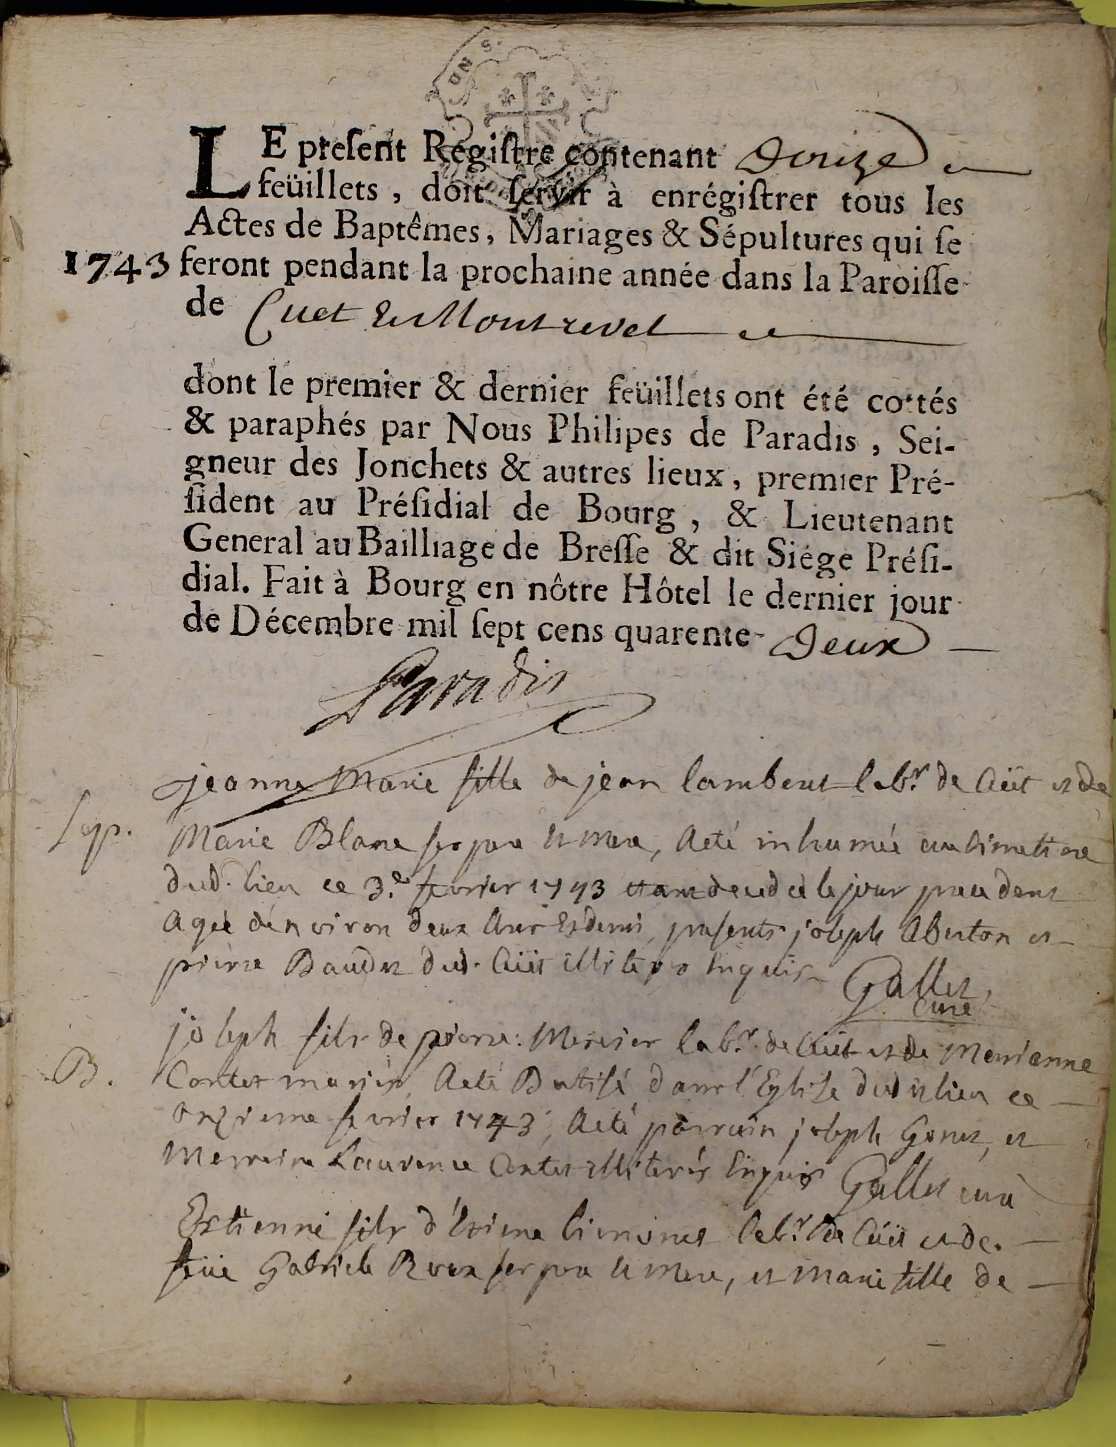 LE present Régistre contenant Douze
feüillets, doit servir à enrégistrer tous les
Actes de Baptêmes, Mariages & Sépultures qui se
1743 feront pendant la prochaine année dans la Paroisse
de Cuet Et Montrevel
dont le premier & dernier feüillets ont été cottés
& paraphés par Nous Philipes de Paradis, Sei-
gneur des Jonchets & autres lieux, premier Pré-
sident au Présidial de Bourg, & Lieutenant
General au Bailliage de Bresse & dit Siége Prési-
dial. Fait à Bourg en nôtre Hôtel le dernier jour
de Décembre mil sept cens quarente-Deux
Paradis
jeanne Marie fille de jean lambert labr. de Cüit et de
Sep. Marie Blanc ses pere et mere, a eté inhumée au cimetiere
dud. lieu ce 3e fevrier 1743 etant decedeé le jour precedent
agée d'environ deux ans et demi, presents joseph Aberton et
pierre Baudet dud. Cüit illiteres enquis
Gallet curé
joseph fils de pierre Mercier labr. de Cüit et de Marianne
B. Contet mariés, a eté Batisé dans l'Eglise dudit lieu ce
onzieme fevrier 1743, a eté parrain joseph Genet, et
Marreine Laurence Contet illiterés enquis Gallet curé
Estienne fils d'Etiene limonet labr. de Cüit et de
feüe Gabriele Roux ses pere et mere, et Marie fille de